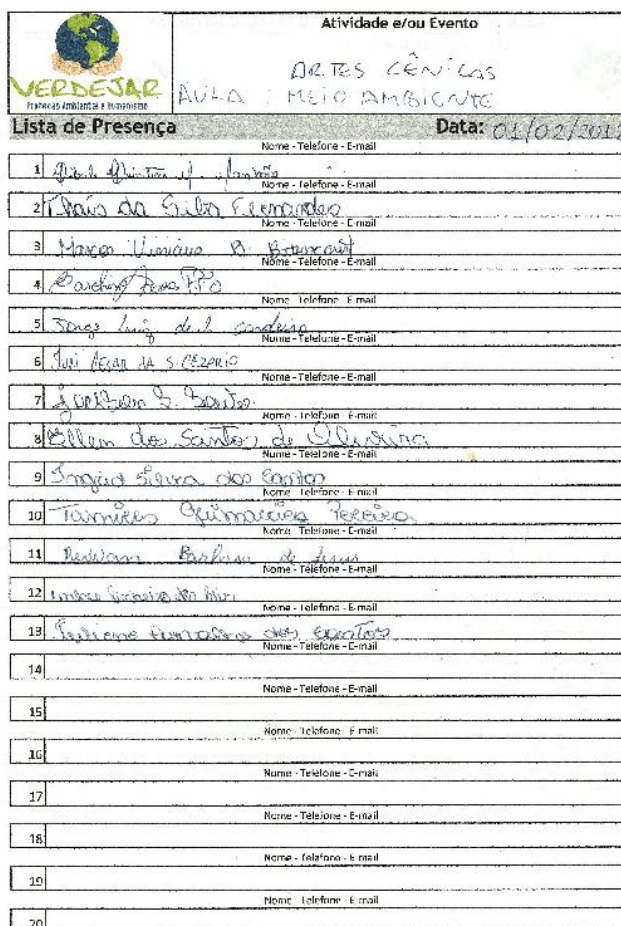 Atividade e/ou Evento
VERDEJAR
Proteção Ambiental e Humanismo
ARTES CÊNICAS
AULA : MEIO AMBIENTE
Lista de Presença Data: 01/02/201
Nome - Telefone - E-mail
1
Nome - Telefone - E-mail
2 Thais da Silva Fernandes
Nome - Telefone - E-mail
3 Marcos Vinicius B. Betencourt
Nome - Telefone - E-mail
4
Nome - Telefone - E-mail
5 Jorge Luiz de S. Cordeiro
Nome - Telefone - E-mail
6 Iuri Cesar da S. Cezario
Nome - Telefone - E-mail
7 S. Santos
Nome - Telefone - E-mail
8 Ellen dos Santos de Oliveira
Nome - Telefone - E-mail
9 Ingrid Silva dos Santos
Nome - Telefone - E-mail
10 Tamires Guimarães Pereira
Nome - Telefone - E-mail
11 Barbosa de Jesus
Nome - Telefone - E-mail
12
Nome - Telefone - E-mail
13 dos Santos
Nome - Telefone - E-mail
14
Nome - Telefone - E-mail
15
Nome - Telefone - E-mail
16
Nome - Telefone - E-mail
17
Nome - Telefone - E-mail
18
Nome - Telefone - E-mail
19
Nome - Telefone - E-mail
20